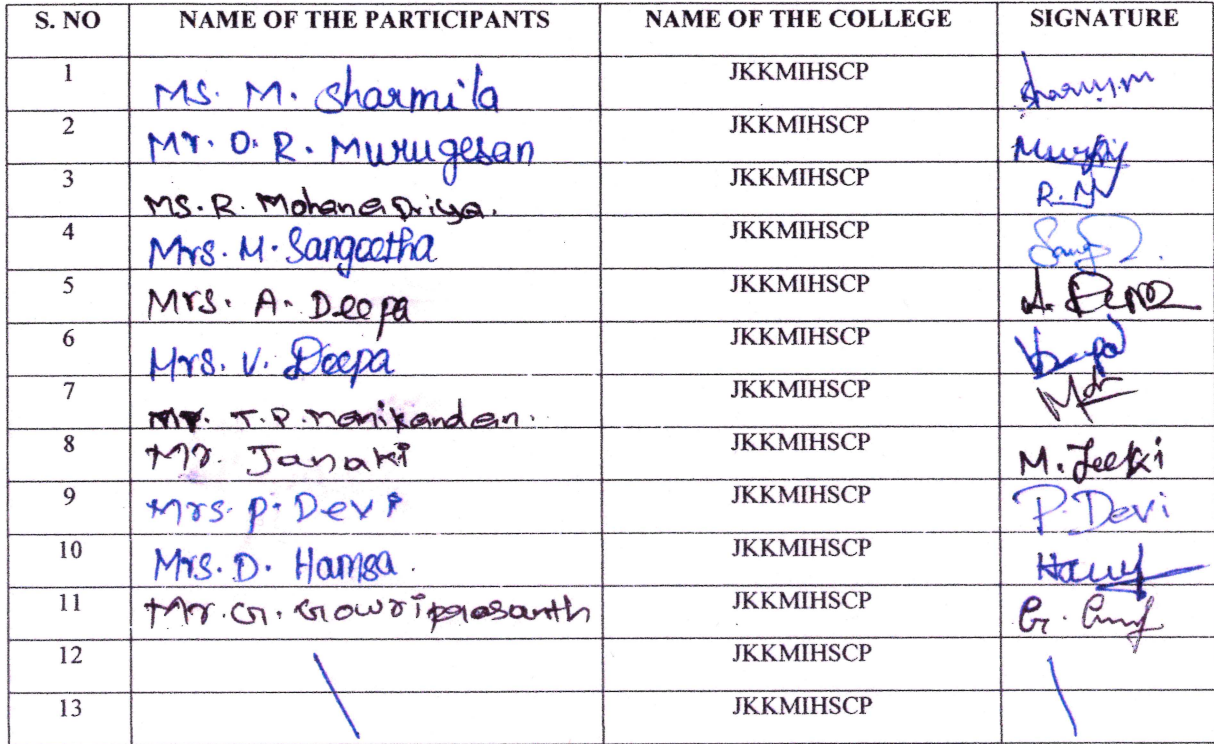 S. NO NAME OF THE PARTICIPANTS NAME OF THE COLLEGE SIGNATURE
1 Ms. M. Sharmila JKKMIHSCP
2 Mr. O. R. Murugesan JKKMIHSCP
3 Ms. R. Mohana Priya. JKKMIHSCP R.M
4 Mrs. M. Sangeetha JKKMIHSCP
5 Mrs. A. Deepa JKKMIHSCP
6 Mrs. V. Deepa JKKMIHSCP
7 Mr. T. P. Manikandan. JKKMIHSCP
8 Mr. Janaki JKKMIHSCP
9 Mrs. P. Devi JKKMIHSCP P. Devi
10 Mrs. D. Hamsa. JKKMIHSCP
11 Mr. G. Gowriprasanth JKKMIHSCP
12 JKKMIHSCP
13 JKKMIHSCP